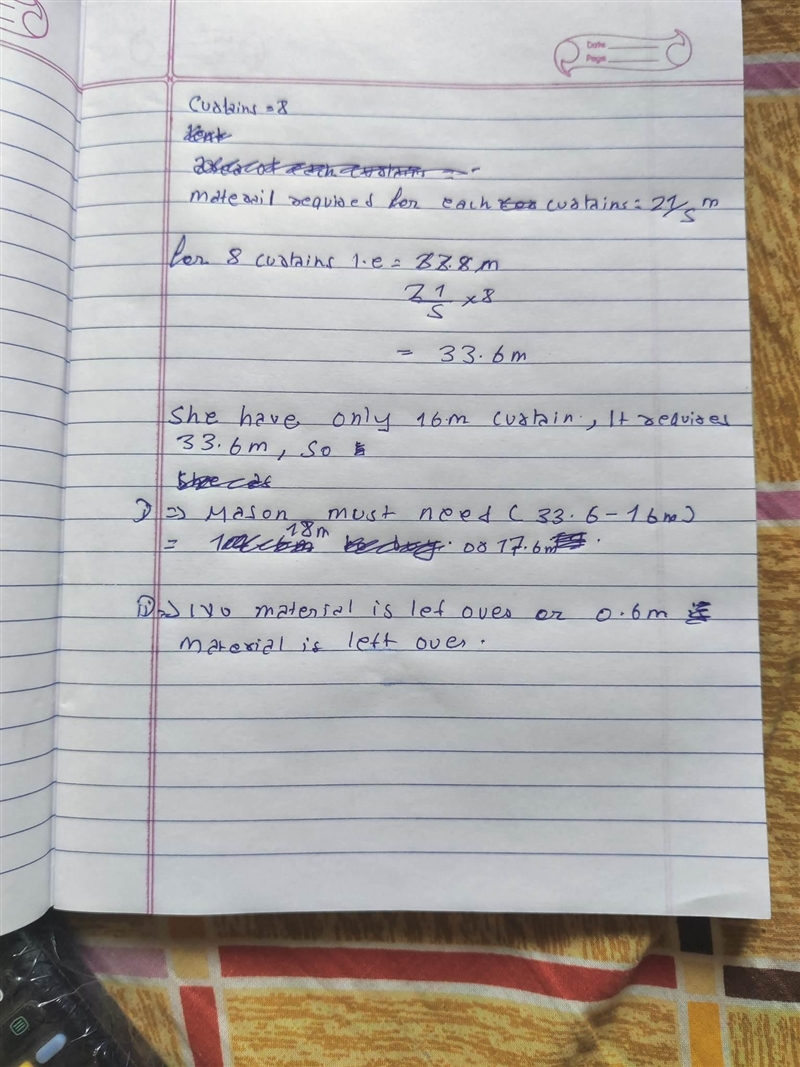 Date
Page
Curtains = 8
material required for each curtains = 21/5 m
for 8 curtains i.e = 33.8 m
21/5 × 8
= 33.6 m
She have only 16 m curtain, It requires
33.6 m, so
i) ⇒ Mason must need (33.6 - 16m)
= 18m or 17.6m
ii) ⇒ No material is lef over or 0.6m
material is left over.